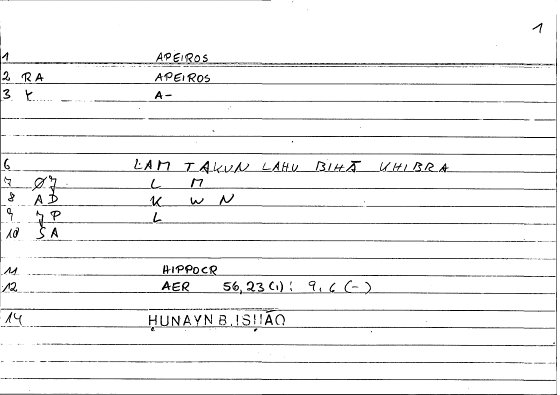 1
1 APEIROS
2 RA APEIROS
3 A-
6 LAM TAKUN LAHU BIHĀ KHIBRA
7 L M
8 AD K W N
9 L
10 SA
11 HIPPOCR
12 AER 56,23 (1) : 9,6 (-)
14 ḤUNAYN B. ISḤĀQ